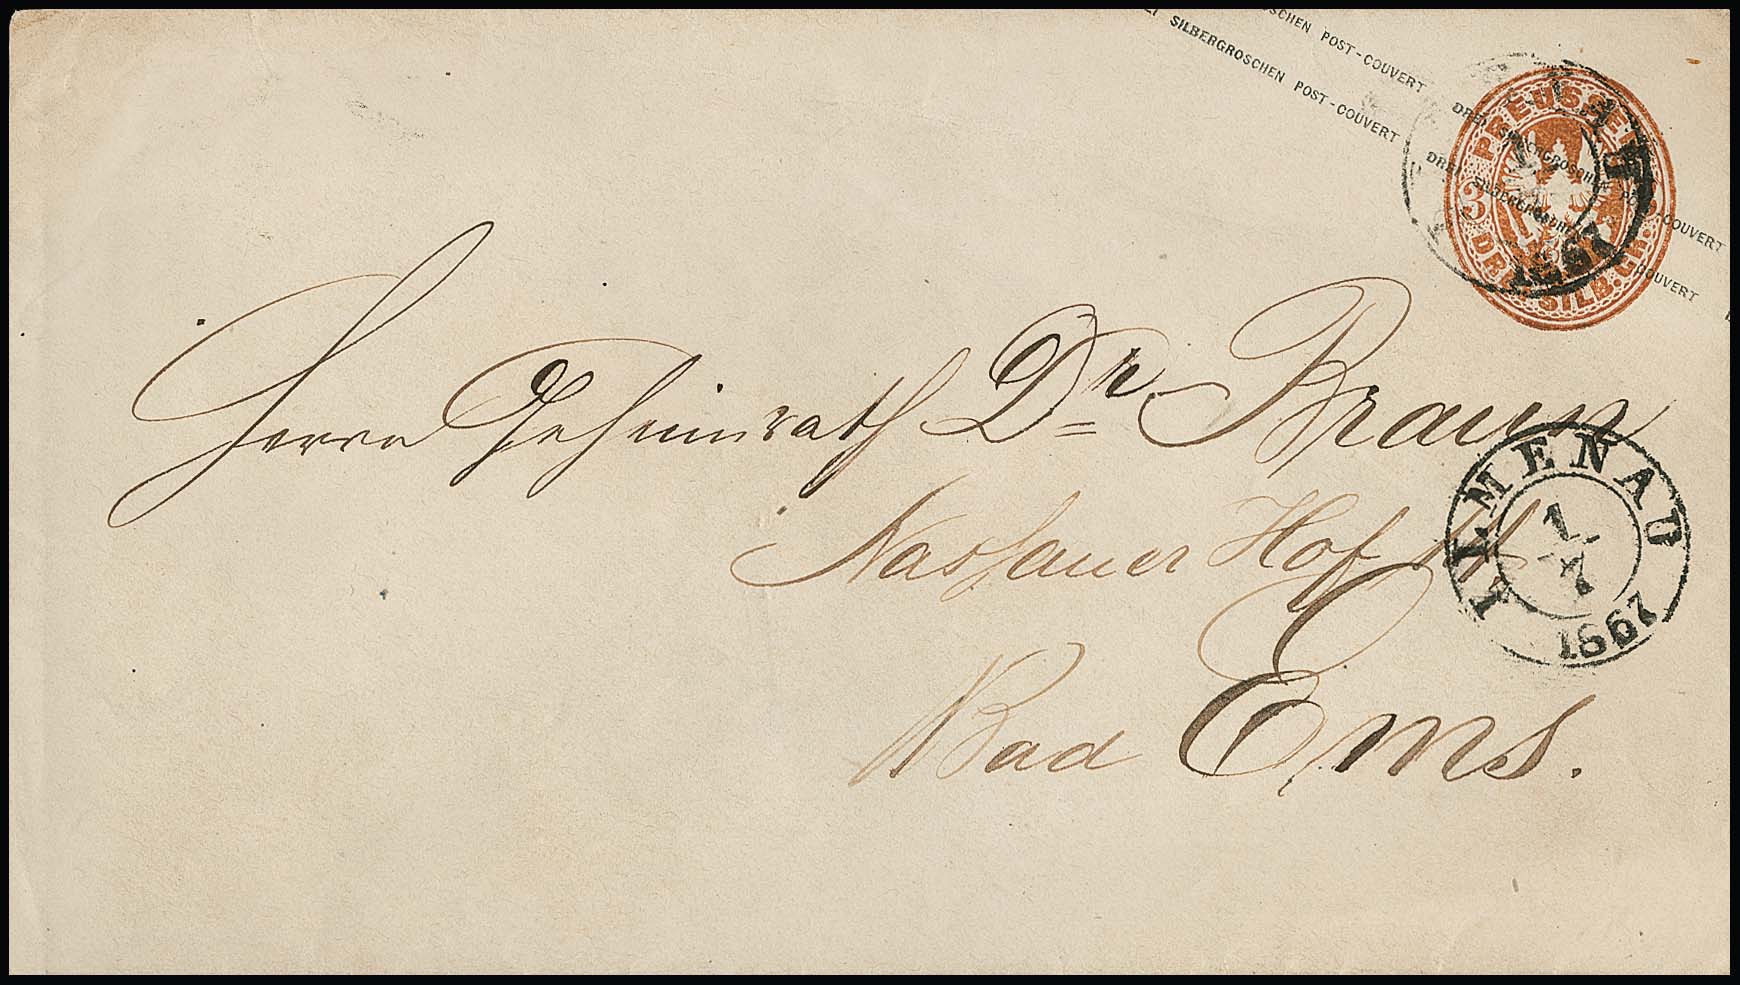 SCHEN POST-COUVERT DREI SILBERGROSCHEN POST-COUVERT
EI SILBERGROSCHEN POST-COUVERT DREI SILBERGROSCHEN COUVERT
PREUSSEN
3
DREI SILB. GR.
1867
Herrn Geheimrath Dr. Braun
Nassauer Hof
Bad Ems.
ILMENAU
1 7
1867